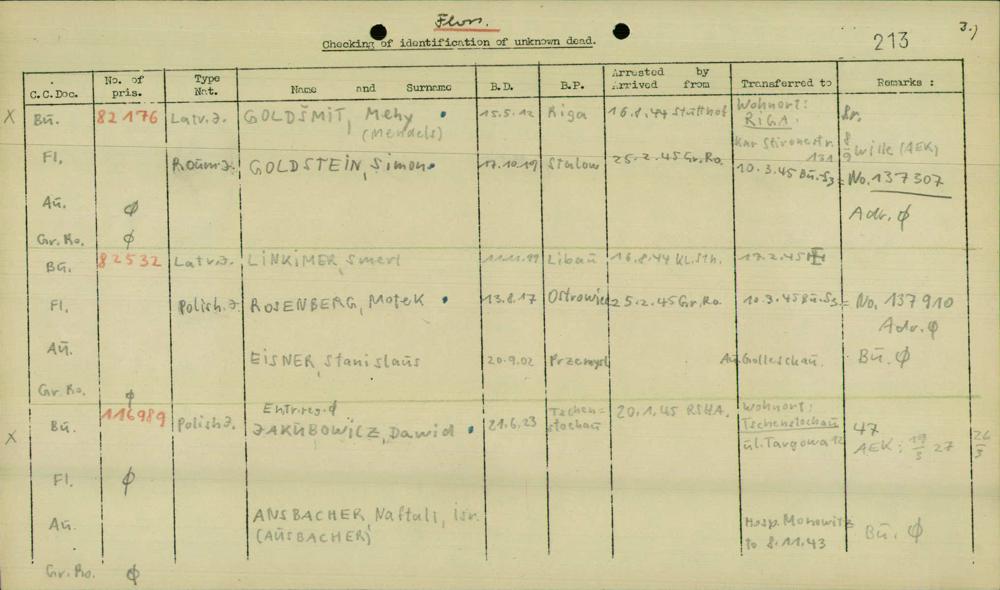 Floss.
3.)
Checking of identification of unknown dead.
213
C.C.Doc. No. of pris. Type Nat. Name and Surname B.D. B.P. Arrested by Arrived from Transferred to Remarks :
X Bu. 82176 Latv.J. GOLDŠMIT, Mehy 15.5.12 Riga 16.8.44 Stutthof Wohnort:
(Mendels) RIGA.
131
Fl. Roum.J. GOLDSTEIN, Simon 17.10.19 25.2.45 Gr.Ro. 10.3.45 Bu.-S3 = No. 137307
8/9 Wille (AEK)
Au. ϕ Adr. ϕ
Gr.Ro. ϕ
Bu. 82532 Latv.J. LINKIMER, Smerl 11.11.99 Libau 16.8.44 Kl.Sth. 17.2.45
Fl. Polish.J. ROSENBERG, Motek 13.8.17 Ostrowiec 25.2.45 Gr.Ro. 10.3.45 Bu.-S3 = No. 137910
Adr. ϕ
Au. EISNER, Stanislaus 20.9.02 Przemysl Au. Golleschau. Bu. ϕ
Gr.Ro. ϕ
X Bu. 116989 Polish J. Entr.reg. ϕ
JAKUBOWICZ, Dawid 21.6.23 Tschen=
stochau 20.1.45 RSHA. Wohnort:
Tschenstochau
ul. Targowa 12
47
AEK: 19/3 27 26/3
Fl. ϕ
Au. ANSBACHER, Naftali, Isr. Hosp. Monowitz Bu. ϕ
(AUSBACHER) to 8.11.43
Gr.Ro. ϕ